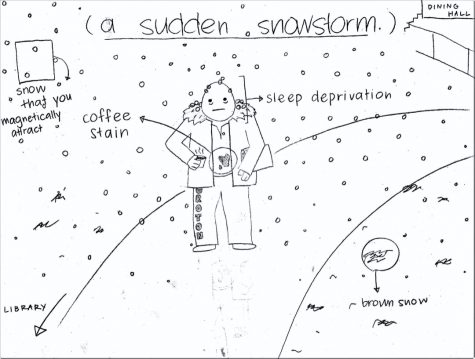 (a sudden snowstorm.)
DINING
HALL
snow
that you
magnetically
attract
coffee
stain
sleep deprivation
GROTON
LIBRARY
brown snow